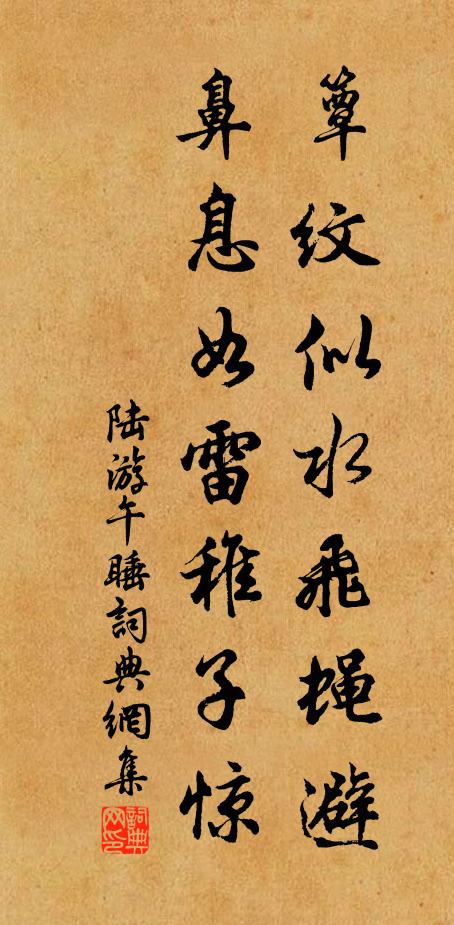 簟纹似水飞蝇避
鼻息如雷稚子惊
陆游午睡詞典網集
詞典网印